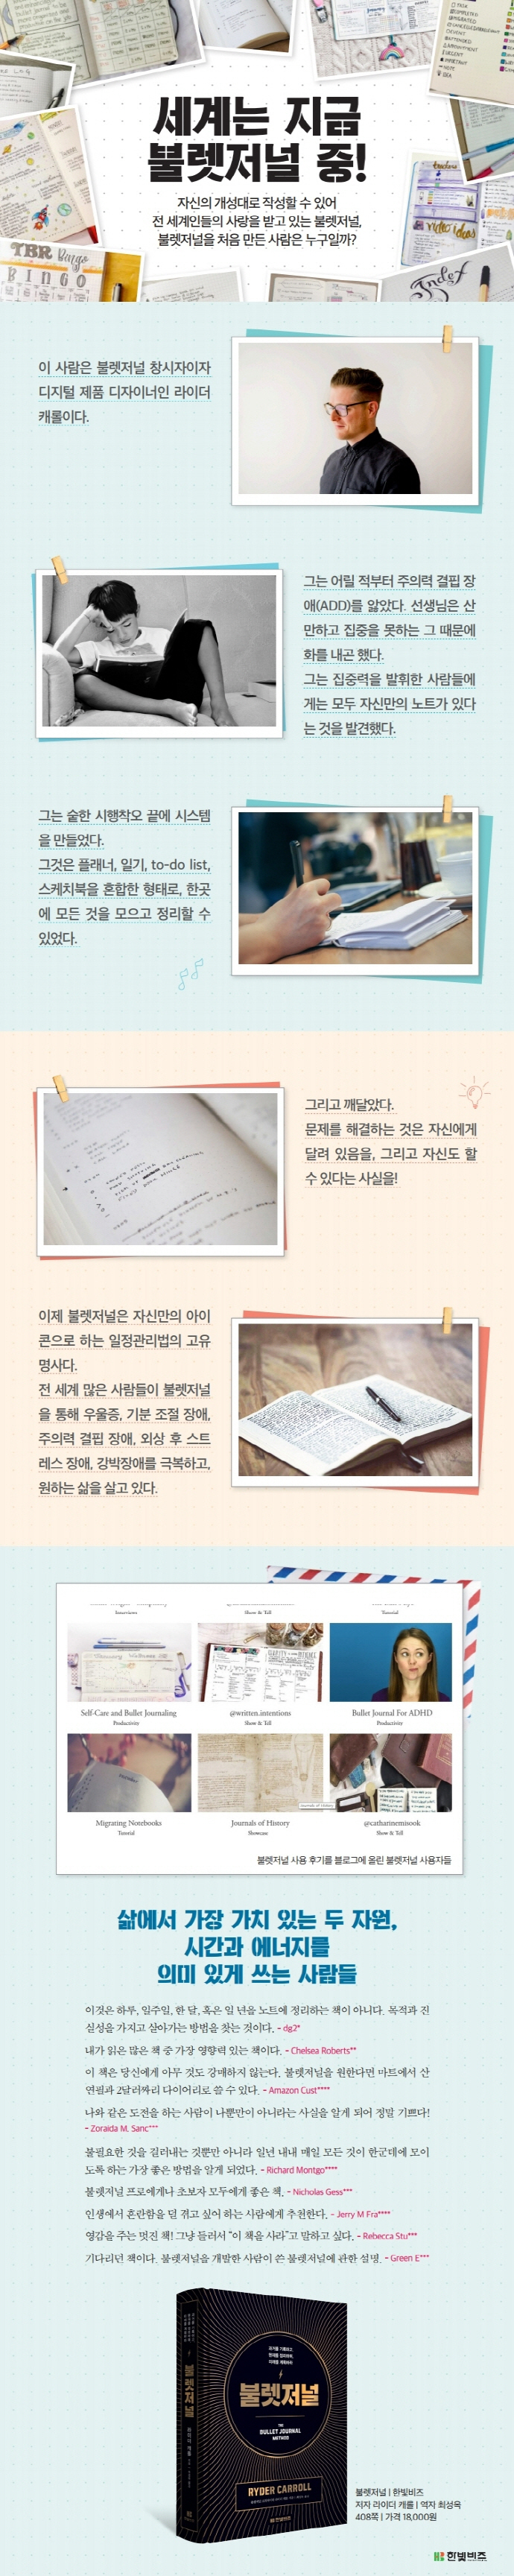 세계는 지금
불렛저널 중!
자신의 개성대로 작성할 수 있어
전 세계인들의 사랑을 받고 있는 불렛저널,
불렛저널을 처음 만든 사람은 누구일까?
TBR Bingo
BINGO
video ideas
Index
이 사람은 불렛저널 창시자이자
디지털 제품 디자이너인 라이더
캐롤이다.
그는 어릴 적부터 주의력 결핍 장
애(ADD)를 앓았다. 선생님은 산
만하고 집중을 못하는 그 때문에
화를 내곤 했다.
그는 집중력을 발휘한 사람들에
게는 모두 자신만의 노트가 있다
는 것을 발견했다.
그는 숱한 시행착오 끝에 시스템
을 만들었다.
그것은 플래너, 일기, to-do list,
스케치북을 혼합한 형태로, 한곳
에 모든 것을 모으고 정리할 수
있었다.
그리고 깨달았다.
문제를 해결하는 것은 자신에게
달려 있음을, 그리고 자신도 할
수 있다는 사실을!
이제 불렛저널은 자신만의 아이
콘으로 하는 일정관리법의 고유
명사다.
전 세계 많은 사람들이 불렛저널
을 통해 우울증, 기분 조절 장애,
주의력 결핍 장애, 외상 후 스트
레스 장애, 강박장애를 극복하고,
원하는 삶을 살고 있다.
Interviews
Show & Tell
Tutorial
Self-Care and Bullet Journaling
Productivity
@written.intentions
Show & Tell
Bullet Journal For ADHD
Productivity
Migrating Notebooks
Tutorial
Journals of History
Showcase
@catharinemisook
Show & Tell
불렛저널 사용 후기를 블로그에 올린 불렛저널 사용자들
삶에서 가장 가치 있는 두 자원,
시간과 에너지를
의미 있게 쓰는 사람들
이것은 하루, 일주일, 한 달, 혹은 일 년을 노트에 정리하는 책이 아니다. 목적과 진
실성을 가지고 살아가는 방법을 찾는 것이다. - dg2*
내가 읽은 많은 책 중 가장 영향력 있는 책이다. - Chelsea Roberts**
이 책은 당신에게 아무 것도 강매하지 않는다. 불렛저널을 원한다면 마트에서 산
연필과 2달러짜리 다이어리로 쓸 수 있다. - Amazon Cust****
나와 같은 도전을 하는 사람이 나뿐만이 아니라는 사실을 알게 되어 정말 기쁘다!
- Zoraida M. Sanc***
불필요한 것을 걸러내는 것뿐만 아니라 일년 내내 매일 모든 것이 한군데에 모이
도록 하는 가장 좋은 방법을 알게 되었다. - Richard Montgo****
불렛저널 프로에게나 초보자 모두에게 좋은 책. - Nicholas Gess***
인생에서 혼란함을 덜 겪고 싶어 하는 사람에게 추천한다. - Jerry M Fra****
영감을 주는 멋진 책! 그냥 들러서 “이 책을 사라”고 말하고 싶다. - Rebecca Stu***
기다리던 책이다. 불렛저널을 개발한 사람이 쓴 불렛저널에 관한 설명. - Green E***
불렛저널
THE
BULLET JOURNAL
METHOD
RYDER CARROLL
불렛저널
불렛저널 | 한빛비즈
저자 라이더 캐롤 | 역자 최성옥
408쪽 | 가격 18,000원
한빛비즈